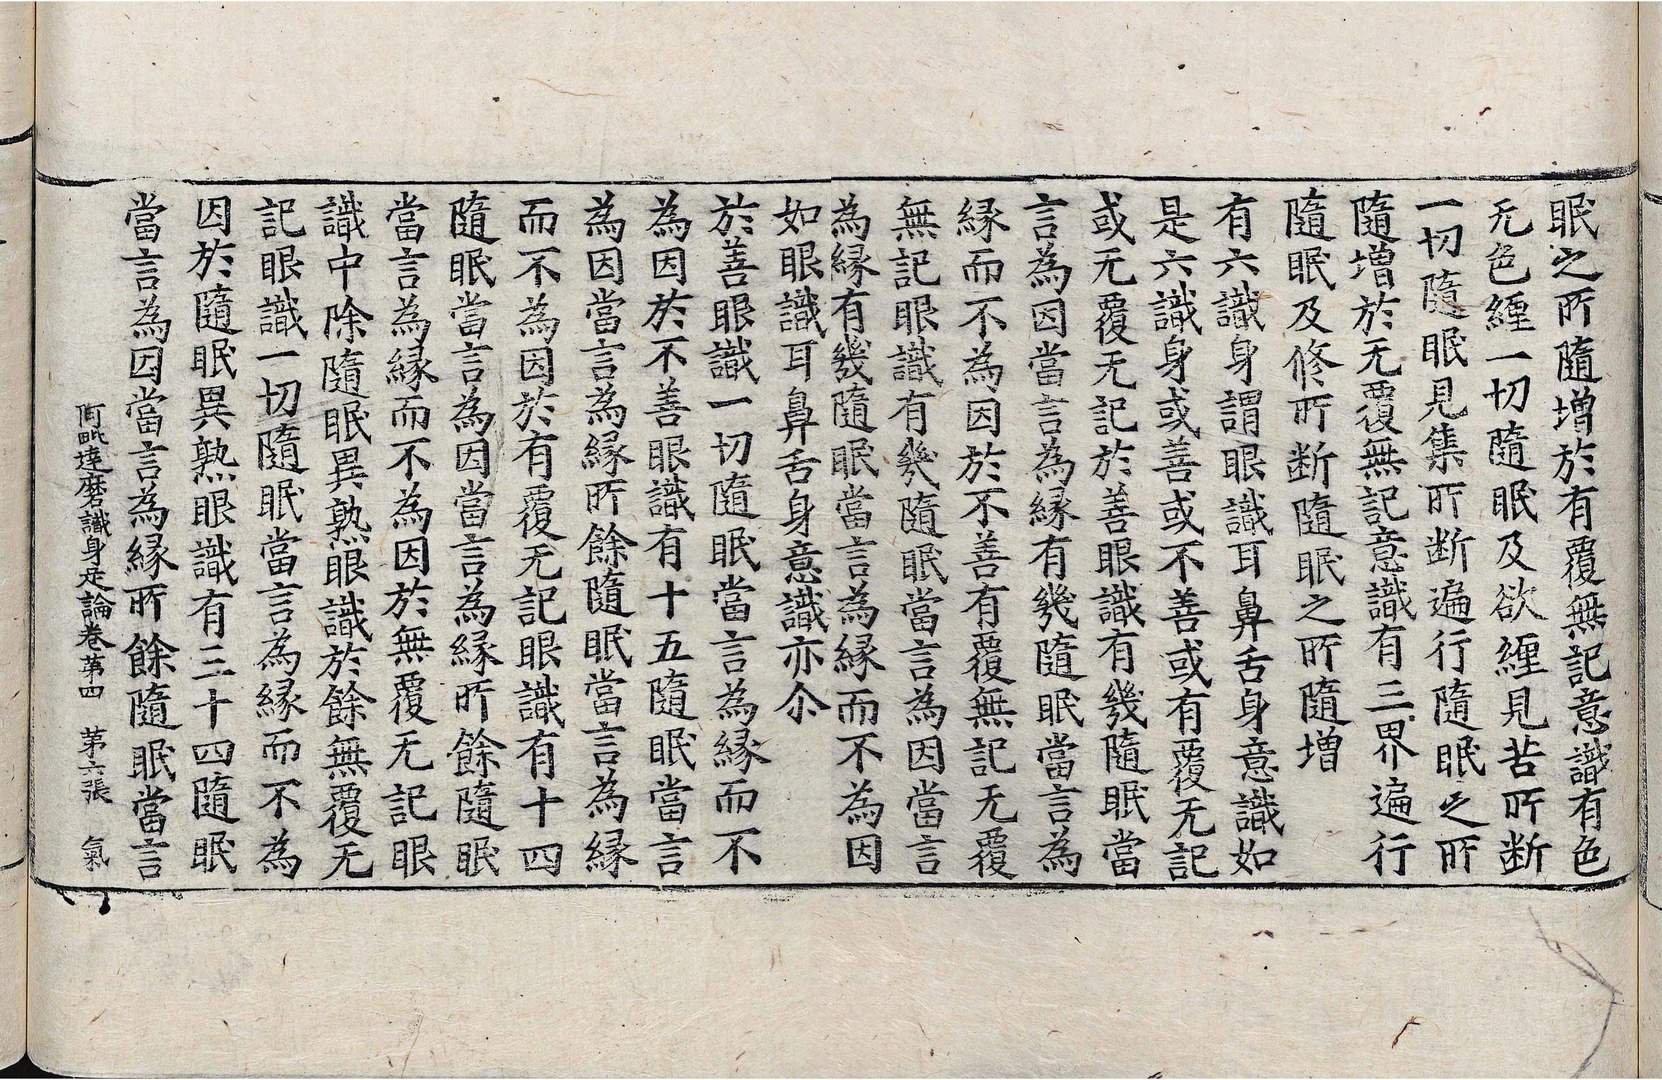 眠之所隨增於有覆無記意識有色
无色纏一切隨眠及欲纏見苦所断
一切隨眠見集所断遍行隨眠之所
隨增於无覆無記意識有三界遍行
隨眠及修所断隨眠之所隨增
有六識身謂眼識耳鼻舌身意識如
是六識身或善或不善或有覆无記
或无覆无記於善眼識有幾隨眠當
言為因當言為縁有幾隨眠當言為
縁而不為因於不善有覆無記无覆
無記眼識有幾隨眠當言為因當言
為縁有幾隨眠當言為縁而不為因
如眼識耳鼻舌身意識亦尒
於善眼識一切隨眠當言為縁而不
為因於不善眼識有十五隨眠當言
為因當言為縁所餘隨眠當言為縁
而不為因於有覆无記眼識有十四
隨眠當言為因當言為縁所餘隨眠
當言為縁而不為因於無覆无記眼
識中除隨眠異熟眼識於餘無覆无
記眼識一切隨眠當言為縁而不為
因於隨眠異熟眼識有三十四隨眠
當言為因當言為縁所餘隨眠當言
阿毗達磨識身足論卷第四 第六張 氣